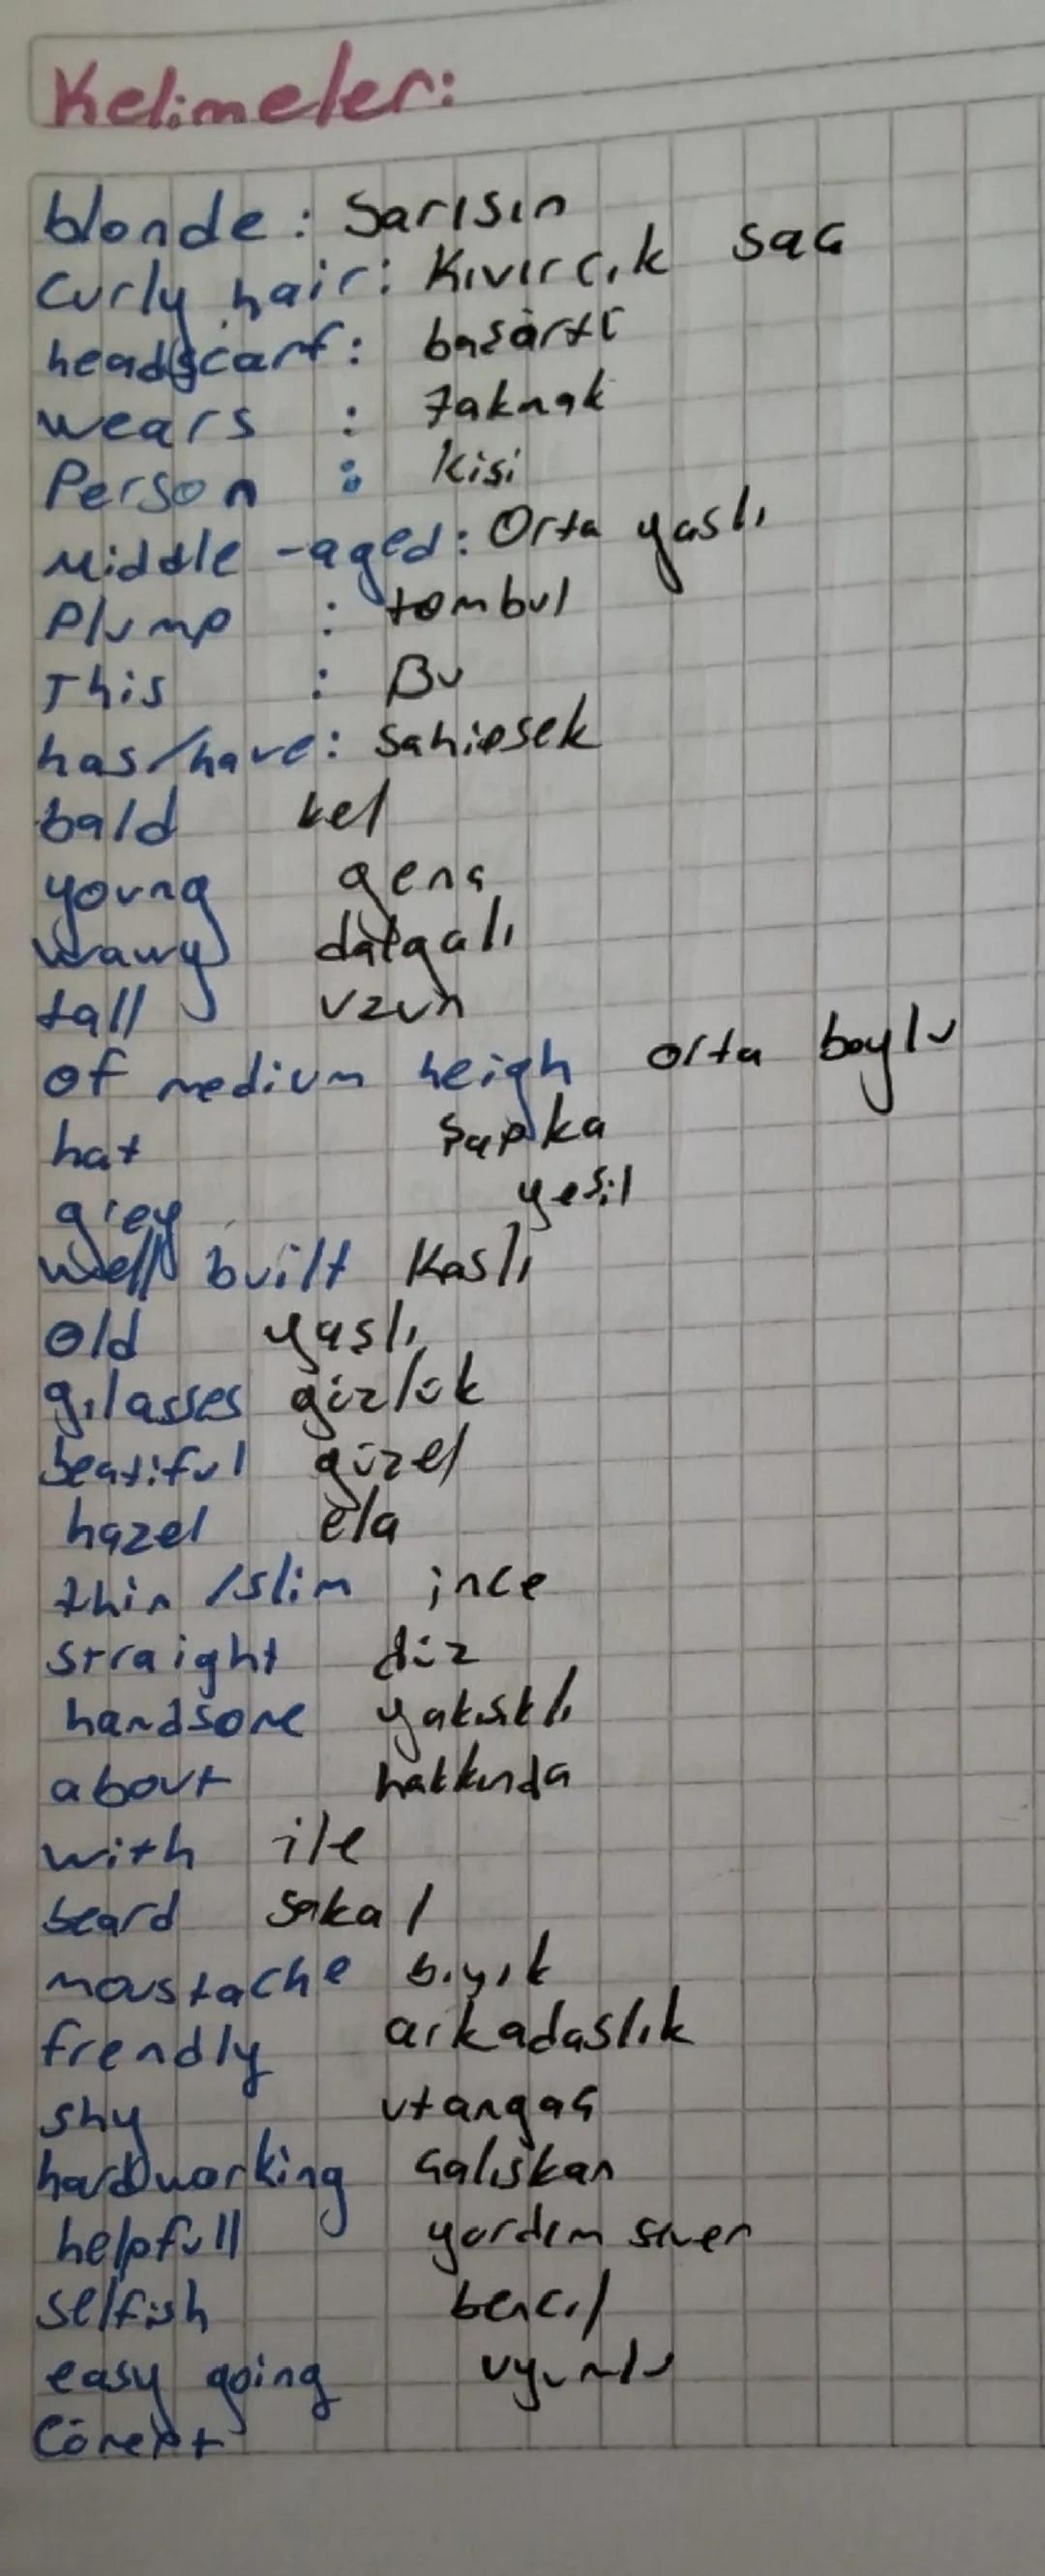 Kelimeler:
blonde: Sarısın
Curly hair: Kıvırcık saç
headscarf: basörtü
wears : Takmak
Person : kisi
Middle-aged: Orta yaslı
Plump : tombul
This : Bu
has/have:
bald kel
young genç
wawy dalgalı
tall uzun
of medium heigh orta boylu
hat Şapka
grey yeşil
well built Kaslı
old yaşlı
gılasses gözlük
beatiful güzel
hazel ela
thin /slim ince
straight düz
handsome yakısklı
about hakkında
with ile
beard sakal
moustache bıyık
frendly arkadaslık
shy utangaç
hardworking çalıskan
helpfull yardım sever
selfish bencil
easy going uyumlu